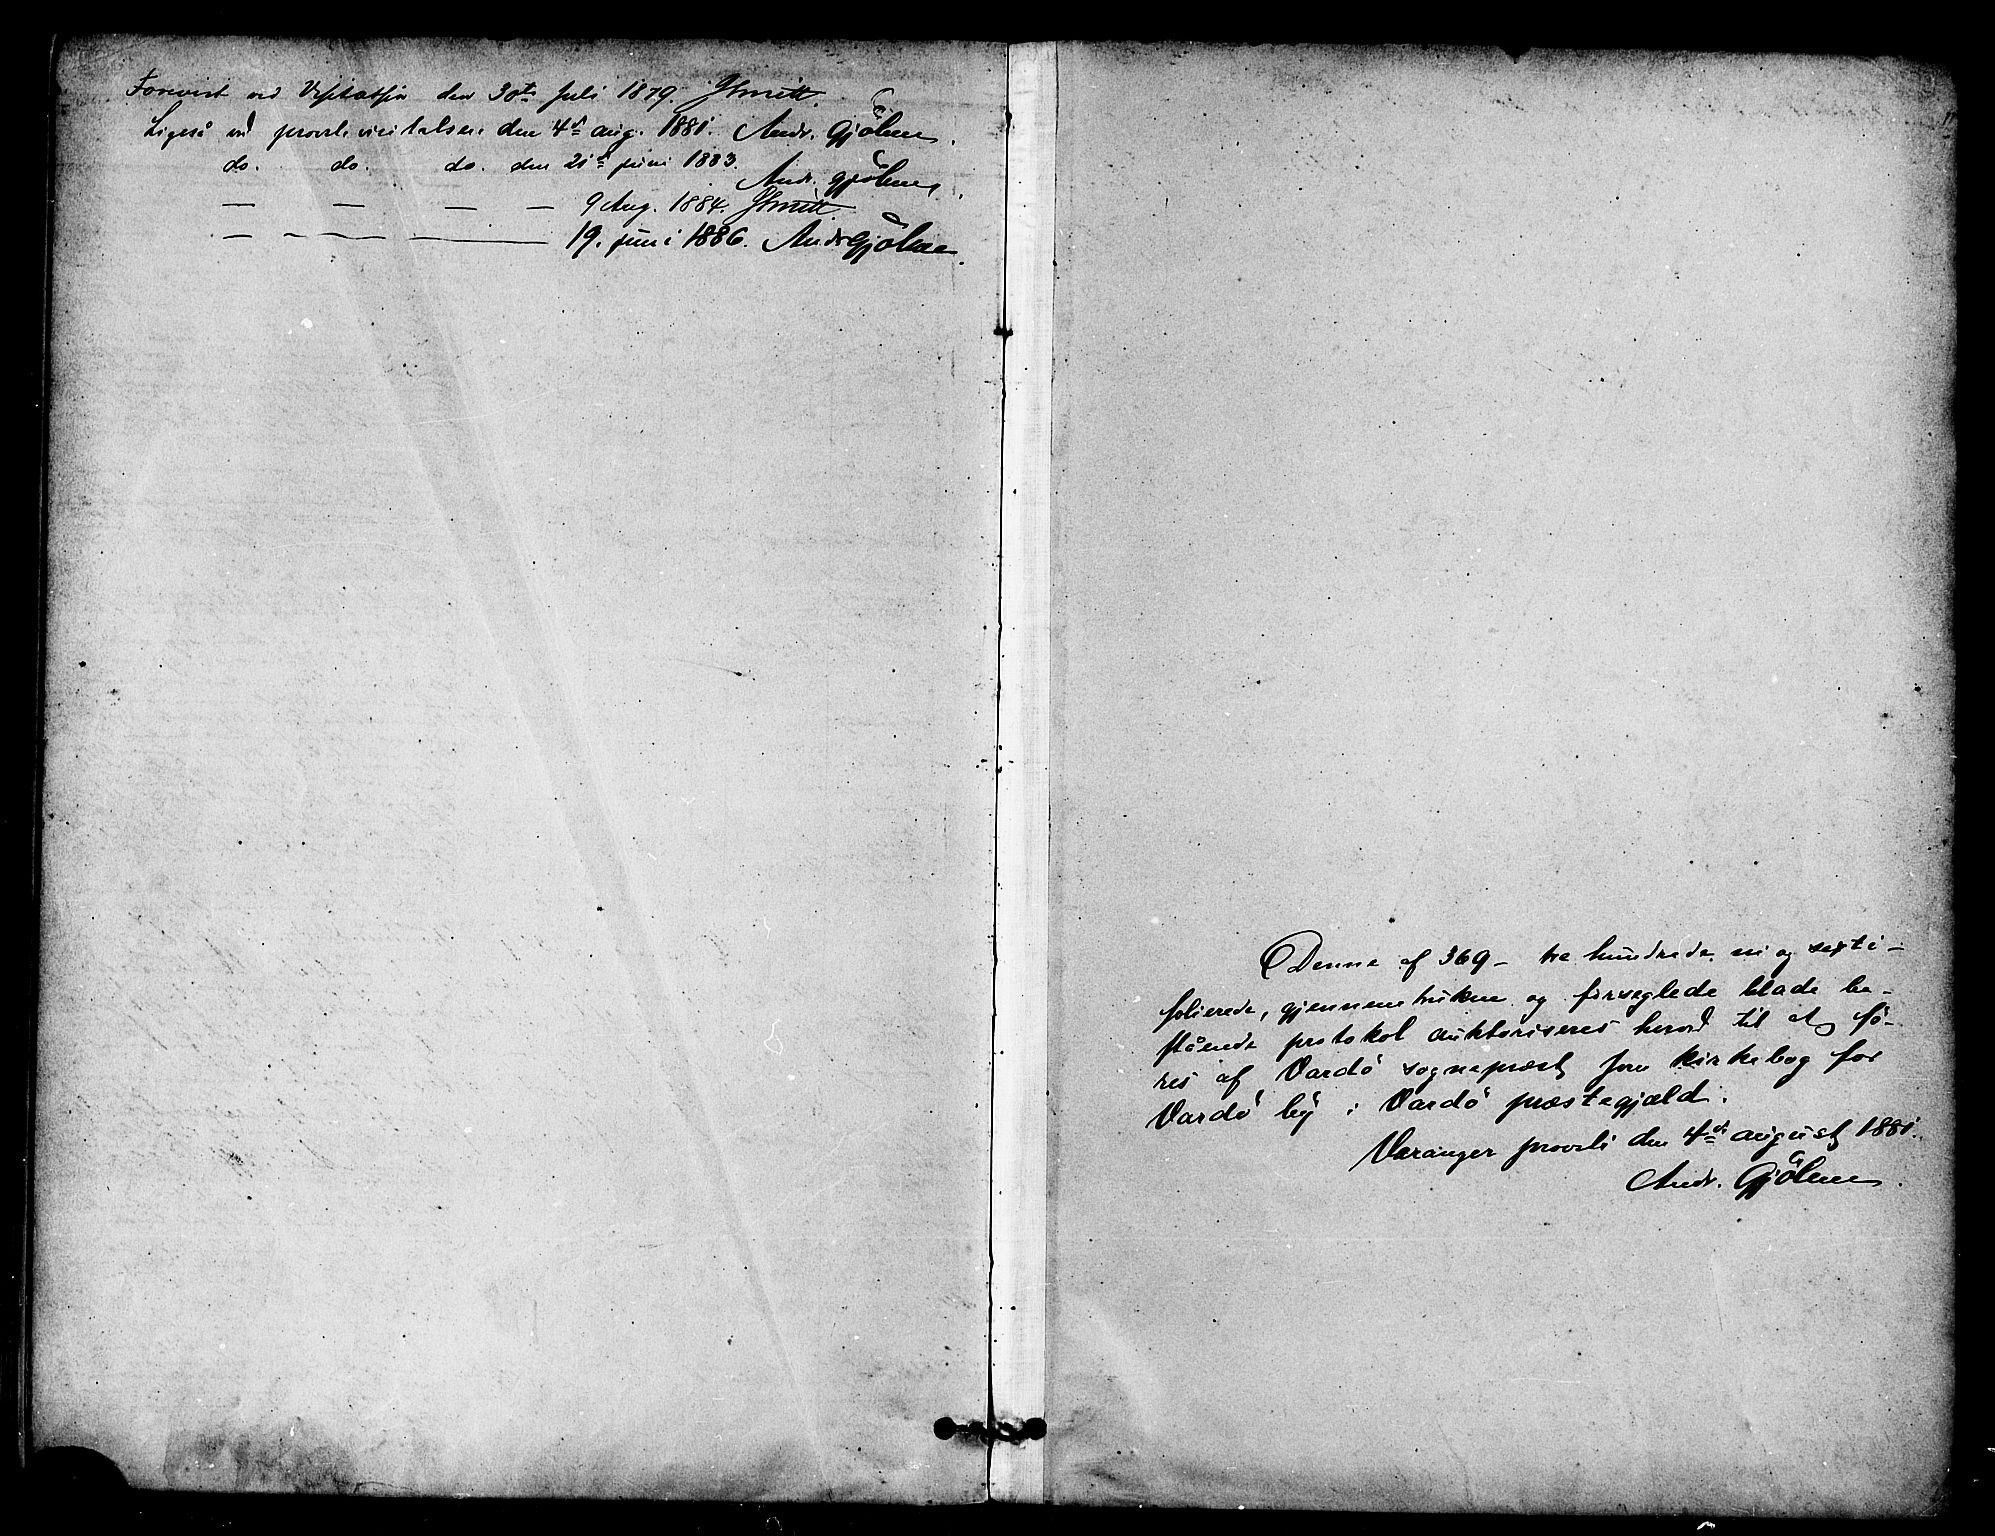 Forevist ved Visitatsen den 30te Juli 1879. JSmitt.
Ligeså ved provstevisitatsen den 4de aug. 1881. Andr. Gjölme.
do. do. do. den 21de juni 1883.
Andr. Gjölme.
— — — — 9 Aug. 1884. JSmitt
— — — 19. juni 1886. Andr Gjölme.
Denne af 369 - tre hundrede ni og sexti -
folierede, gjennemtrukne og forseglede blade be-
stående protokol auktoriseres herved til at fö-
res af Vardö sognepræst som kirkebog for
Vardö by i Vardö præstegjæld.
Varanger provsti den 4de august 1881.
Andr. Gjölme.